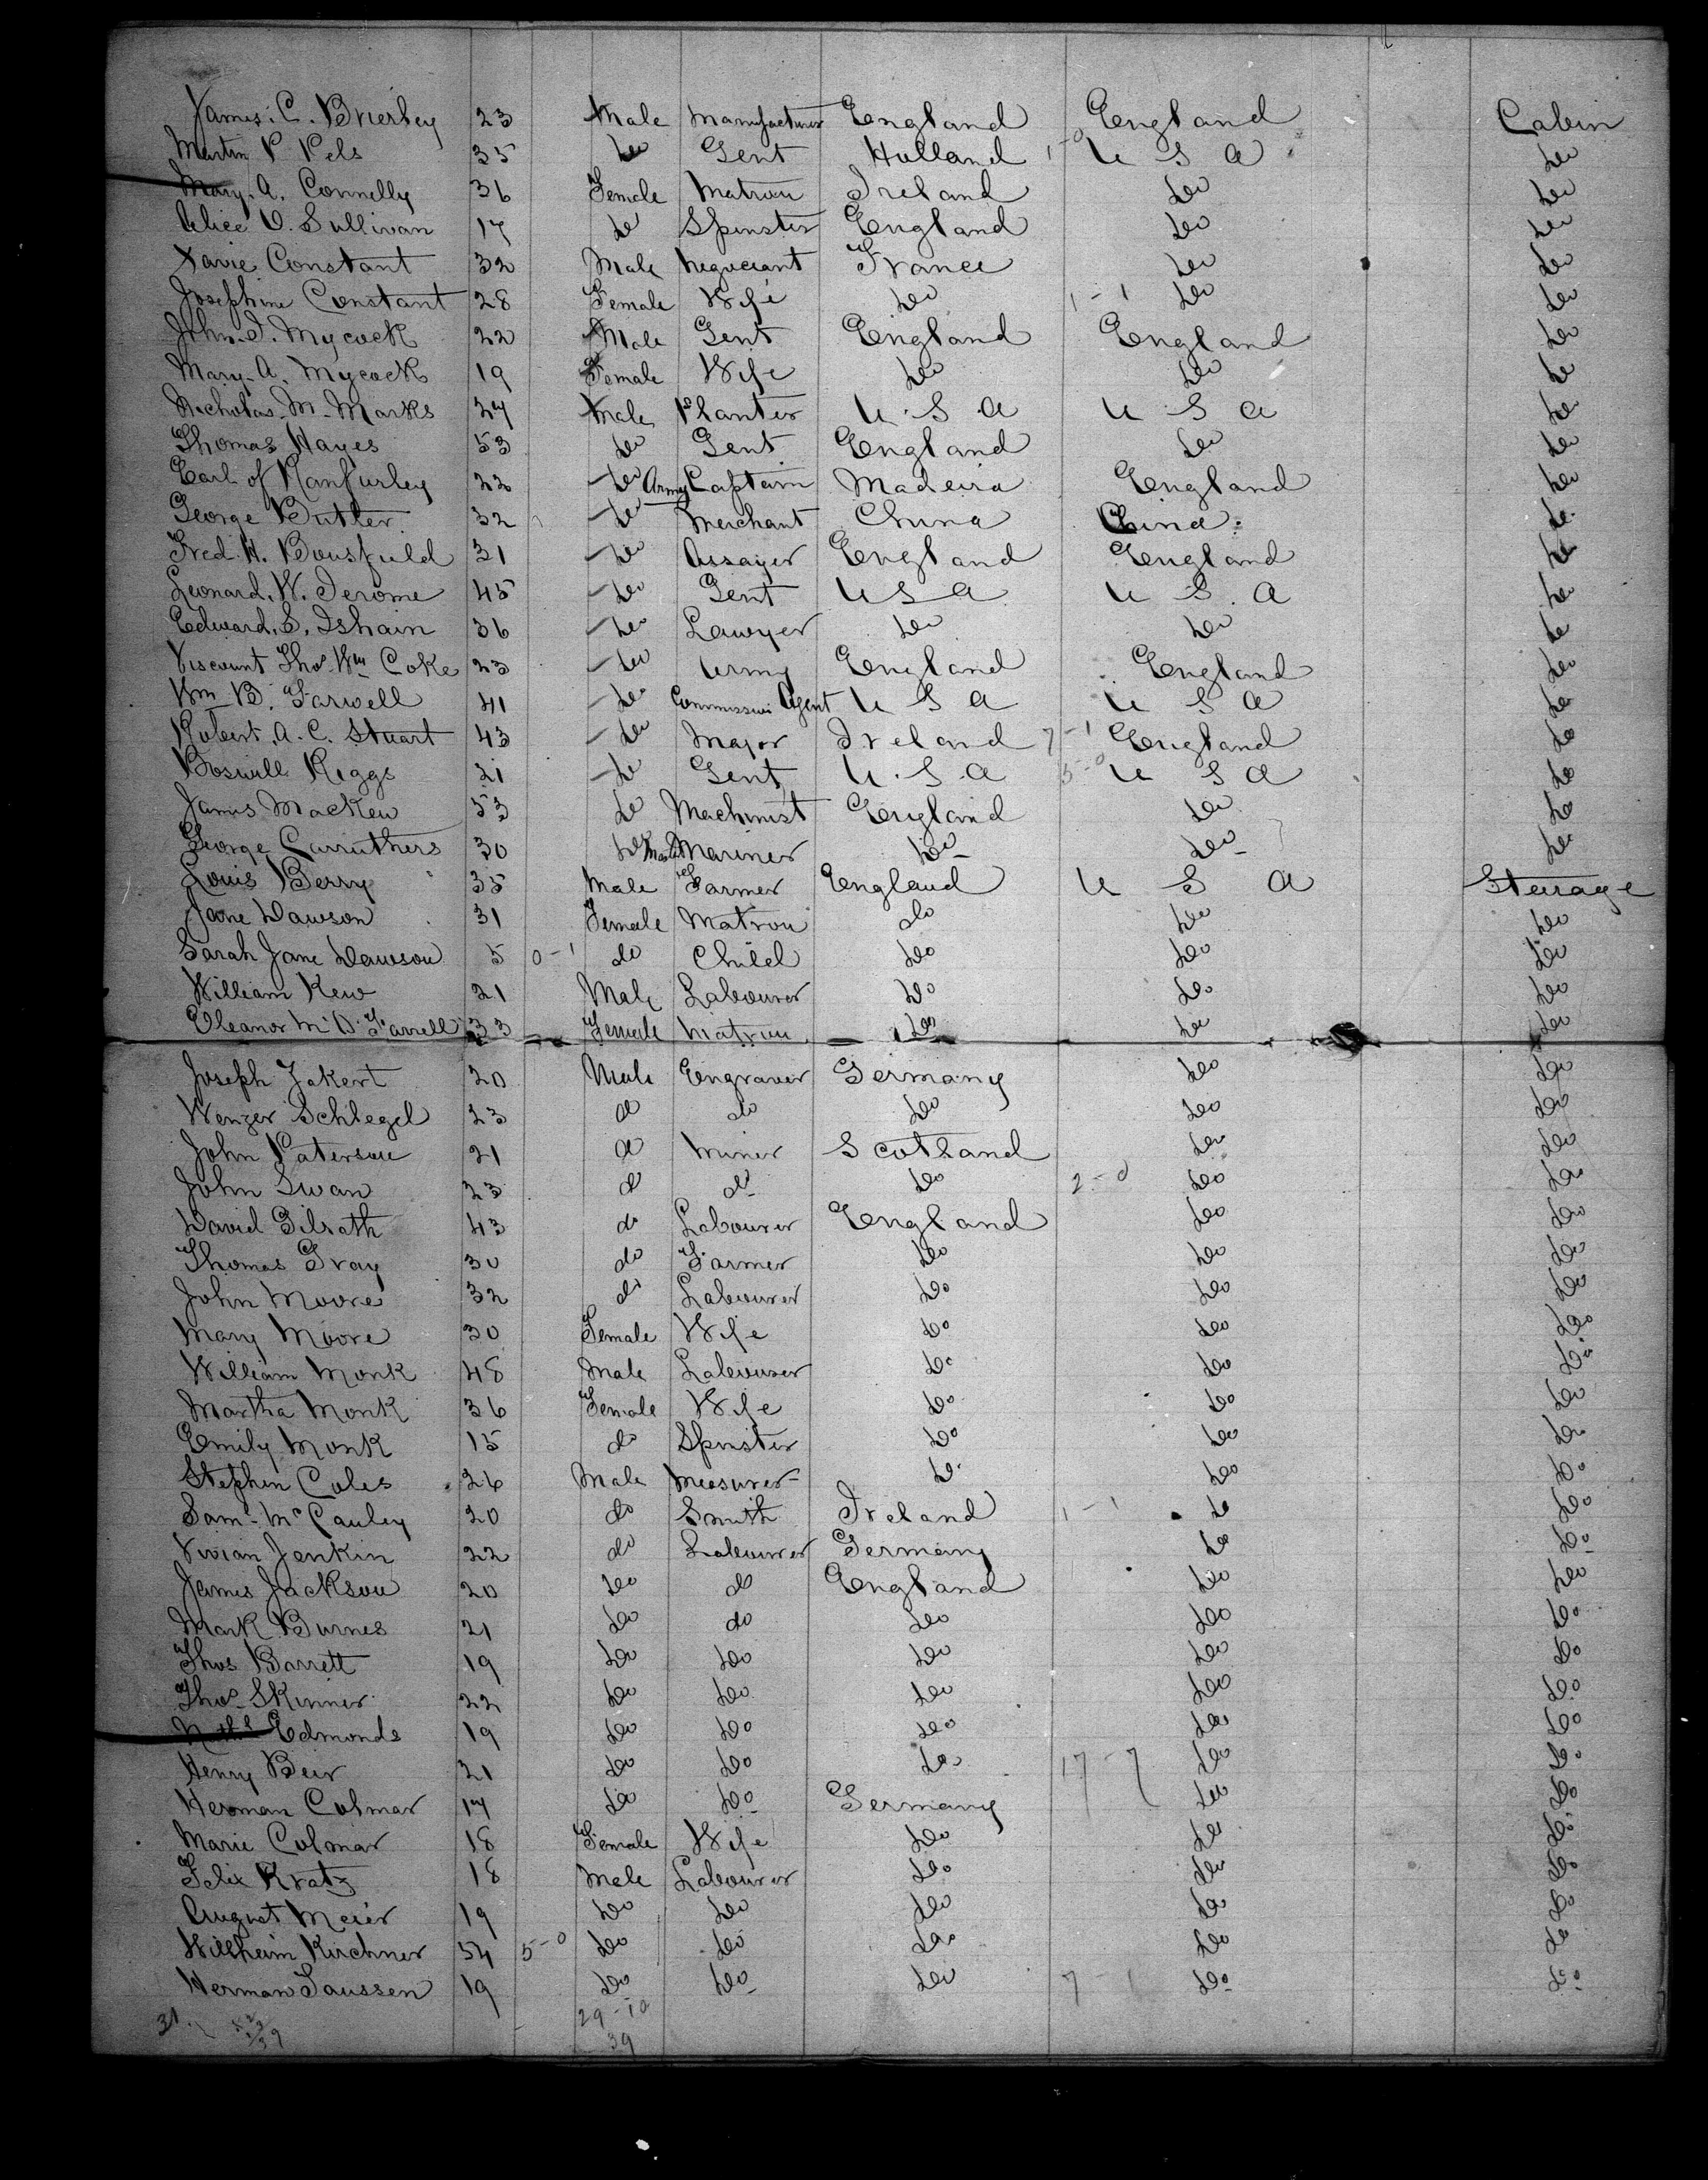 James. C. Brierley 23 Male Manufacturer England England Cabin
Martin P Pels 35 Do Gent Holland 1-0 U S A Do
Mary. A. Connelly 36 Female Matron Ireland Do Do
Alice O. Sullivan 17 Do Spinster England Do Do
Xavie Constant 32 Male Negociant France Do Do
Josephine Constant 28 Female Wife Do 1-1 Do Do
John. I. Mycock 22 Male Gent England England Do
Mary. A. Mycock 19 Female Wife Do Do Do
Nicholas. M. Marks 27 Male Planter U. S. A U S A Do
Thomas Hayes 53 Do Gent England Do Do
Earl of Ranfurley 22 Do Army Captain Madeira England Do
George Butler 32 Do Merchant China China. Do
Fred. H. Bousfield 31 Do Assayer England England Do
Leonard. W. Jerome 45 Do Gent U S A U S. A Do
Edward. S. Isham 36 Do Lawyer Do Do Do
Viscount Thos Wm Coke 23 Do Army England England Do
Wm B. Farwell 41 Do Commission Agent U S A U S A Do
Robert. A. C. Stuart 43 Do Major Ireland 7-1 England Do
Boswell Riggs 21 Do Gent U. S. A 5-0 U S A Do
James Mackew 53 Do Machinist England Do Do
George Carruthers 30 Do Master Mariner Do Do Do
Louis Berry 35 Male Farmer England U S A Steerage
Jane Dawson 31 Female Matron do Do Do
Sarah Jane Dawson 5 0-1 do Child Do Do Do
William Kew 21 Male Labourer Do Do Do
Eleanor Farrell 33 Female Matron Do Do Do
Joseph Jakert 20 Male Engraver Germany Do Do
Wenzer Schlegel 23 do do Do Do Do
John Paterson 21 do Miner Scotland Do Do
John Swan 23 do do Do 2-0 Do Do
David Gilrath 43 do Labourer England Do Do
Thomas Gray 30 do Farmer Do Do Do
John Moore 32 do Labourer Do Do Do
Mary Moore 30 Female Wife Do Do Do
William Monk 48 Male Labourer Do Do Do
Martha Monk 36 Female Wife Do Do Do
Emily Monk 15 do Spinster Do Do Do
Stephen Coles 26 Male Measurer Do Do Do
Saml. McCauley 20 do Smith Ireland 1-1 Do Do
Vivian Jenkin 22 do Labourer Germany Do Do
James Jackson 20 Do do England Do Do
Mark Burnes 21 Do do Do Do Do
Thos Barrett 19 Do Do Do Do Do
Thos Skinner 22 Do Do Do Do Do
Edmonds 19 Do Do Do Do Do
Henry Beer 21 Do Do Do 17-7 Do Do
Herman Colmar 17 Do Do Germany Do Do
Marie Colmar 18 Female Wife Do Do Do
Felix Kratz 18 Male Labourer Do Do Do
August Meier 19 Do Do Do Do Do
Wilhelm Kirchner 54 5-0 Do Do Do Do Do
Herman Saussen 19 Do Do Do 7-1 Do Do
31 29-10
39